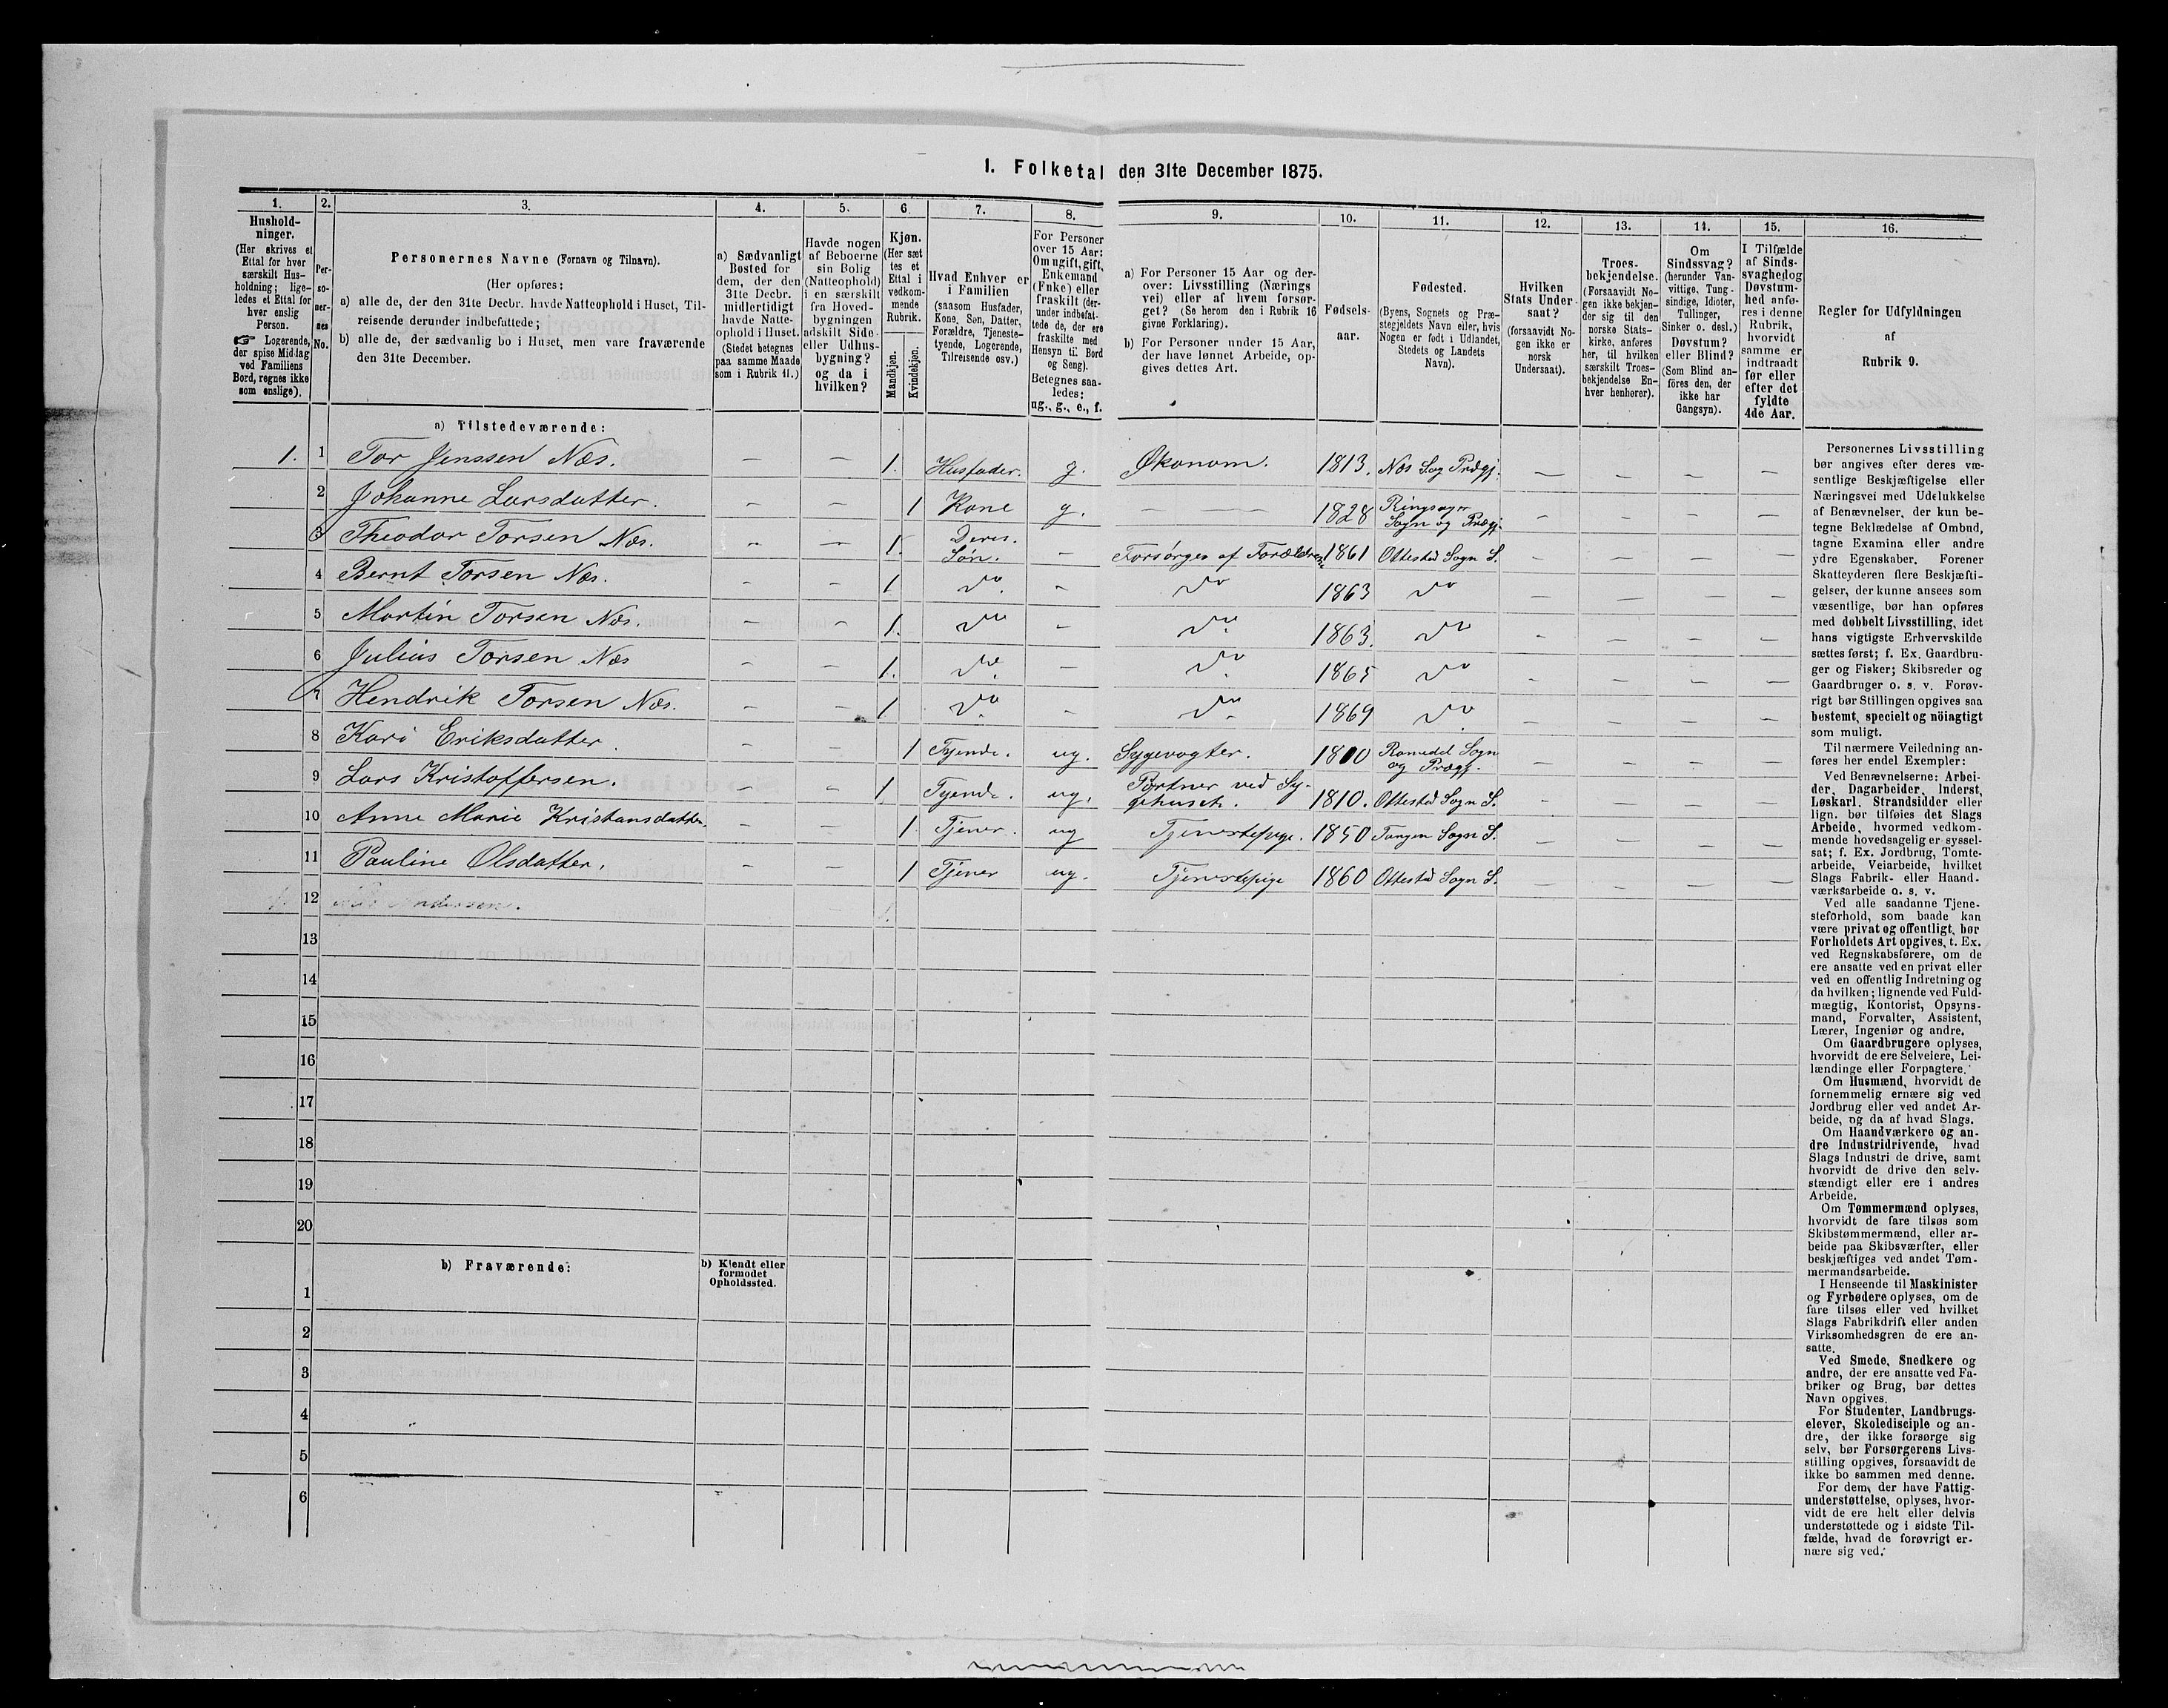 1. Folketal den 31te December 1875.
1.
2.
3.
4.
5.
6.
7.
8.
9.
10.
11.
12.
13.
14.
15.
16.
Hushold-
ninger.
(Her skrives et
Ettal for hver
særskilt Hus-
holdning; lige-
ledes et Ettal for
hver enslig
Person.
☞ Logerende,
der spise Middag
ved Familiens
Bord, regnes ikke
som enslige).
Per-
so-
ner-
nes
No.
Personernes Navne (Fornavn og Tilnavn).
(Her opføres:
a) alle de, der den 31te Decbr. havde Natteophold i Huset, Til-
reisende derunder indbefattede;
b) alle de, der sædvanlig bo i Huset, men vare fraværende
den 31te December.
a) Sædvanligt
Bosted for
dem, der den
31te Decbr.
midlertidigt
havde Natte-
ophold i Huset.
(Stedet betegnes
paa samme Maade
som i Rubrik 11.)
Havde nogen
af Beboerne
sin Bolig
(Natteophold)
i en særskilt
fra Hoved-
bygningen
adskilt Side-
eller Udhus-
bygning?
og da i
hvilken?
Kjøn.
(Her sæt
tes et
Ettal i
vedkom-
mende
Rubrik.
Mandkjøn.
Kvindekjøn.
Hvad Enhver er
i Familien
(saasom Husfader,
Kone, Søn, Datter,
Forældre, Tjeneste-
tyende, Logerende,
Tilreisende osv.)
For Personer
over 15 Aar:
Om ugift, gift,
Enkemand
(Enke) eller
fraskilt (der-
under indbefat-
tede de, der ere
fraskilte med
Hensyn til Bord
og Seng).
Betegnes saa-
ledes:
ug., g., e., f.
a) For Personer 15 Aar og der-
over: Livsstilling (Nærings
vei) eller af hvem forsør-
get? (Se herom den i Rubrik 16
givne Forklaring).
b) For Personer under 15 Aar,
der have lønnet Arbeide, op-
gives dettes Art.
Fødsels-
aar.
Fødested.
(Byens, Sognets og Præ-
stegjeldets Navn eller, hvis
Nogen er født i Udlandet,
Stedets og Landets
Navn).
Hvilken
Stats Under-
saat?
(forsaavidt No-
gen ikke er
norsk
Undersaat).
Troes-
bekjendelse.
(Forsaavidt No-
gen ikke bekjen-
der sig til den
norske Stats-
kirke, anføres
her, til hvilken
særskilt Troes-
bekjendelse En-
hver henhører).
Om
Sindssvag?
(herunder Van-
vittige, Tung-
sindige, Idioter,
Tullinger,
Sinker o. desl.)
Døvstum?
eller Blind?
(Som Blind an-
föres den, der
ikke har
Gangsyn).
I Tilfælde
af Sinds-
svaghed og
Døvstum-
hed anfø-
res i denne
Rubrik,
hvorvidt
samme er
indtraadt
før eller
efter det
fyldte
4de Aar.
Regler for Udfyldningen
af
Rubrik 9.
a) Tilstedeværende:
1. 1 Tor Jenssen Næs. — — 1. Husfader. g. Økonom. 1813. Næs Sog Prægj. — — — —
2 Johanne Larsdatter. — — 1 Kone g. — — 1828 Ringsager Sogn og Prægj. — — — —
3 Theodor Torsen Næs. — — 1. Deres Søn. — Forsørges af Forældrene 1861 Ottestad Sogn S. — — — —
4 Bernt Torsen Næs. — — 1 Do. — Do 1863 Do — — — —
5 Martin Torsen Næs. — — 1. Do — Do 1863. Do — — — —
6 Julius Torsen Næs — — 1. Do. — Do 1865 Do — — — —
7 Hendrik Torsen Næs. — — 1 Do — Do 1869 Do — — — —
8 Kari Eriksdatter. — — 1 Tyende. ug. Sygevogter. Romedal Sogn og Prægj. — — — —
9 Lars Kristoffersen. — — 1 Tyende. ug. Portner ved Sygehuset. 1810. Ottestad Sogn S. — — — —
10 Anne Marie Kristansdatter. — — 1 Tjener. ug Tjenestepige. 1850 Tangen Sogn S. — — — —
11 Pauline Olsdatter. — — 1 Tjener ug. Tjenestepige 1860 Ottestad Sogn S. — — — —
12 Andersen. 1.
13
14
15
16
17
18
19
20
b) Fraværende:
b) Kjendt eller
formodet
Opholdssted.
1
2
3
4
5
6
Personernes Livsstilling
bør angives efter deres væ-
sentlige Beskjæftigelse eller
Næringsvei med Udelukkelse
af Benævnelser, der kun be-
tegne Beklædelse af Ombud,
tagne Examina eller andre
ydre Egenskaber. Forener
Skatteyderen flere Beskjæfti-
gelser, der kunne ansees som
væsentlige, bør han opføres
med dobbelt Livsstilling, idet
hans vigtigste Erhvervskilde
sættes først; f. Ex. Gaardbru-
ger og Fisker; Skibsreder og
Gaardbruger o. s. v. Forøv-
rigt bør Stillingen opgives saa
bestemt, specielt og nöiagtigt
som muligt.
Til nærmere Veiledning an-
føres her endel Exempler:
Ved Benævnelserne: Arbei-
der, Dagarbeider, Inderst,
Løskarl, Strandsidder eller
lign. bør tilføies det Slags
Arbeide, hvormed vedkom-
mende hovedsagelig er syssel-
sat; f. Ex. Jordbrug, Tomte-
arbeide, Veiarbeide, hvilket
Slags Fabrik- eller Haand-
værksarbeide o. s. v.
Ved alle saadanne Tjene-
steforhold, som baade kan
være privat og offentligt, bør
Forholdets Art opgives, t. Ex.
ved Regnskabsførere, om de
ere ansatte ved en privat eller
ved en offentlig Indretning og
da hvilken; lignende ved Fuld-
mægtig, Kontorist, Opsyns-
mand, Forvalter, Assistent,
Lærer, Ingeniør og andre.
Om Gaardbrugere oplyses,
hvorvidt de ere Selveiere, Lei-
lændinge eller Forpagtere.
Om Husmænd, hvorvidt de
fornemmelig ernære sig ved
Jordbrug eller ved andet Ar-
beide, og da af hvad Slags.
Om Haandværkere og an-
dre Industridrivende, hvad
Slags Industri de drive, samt
hvorvidt de drive den selv-
stændigt eller ere i andres
Arbeide.
Om Tømmermænd oplyses,
hvorvidt de fare tilsøs som
Skibstømmermænd, eller ar-
beide paa Skibsværfter, eller
beskjæftiges ved andet Tøm-
mermandsarbeide.
I Henseende til Maskinister
og Fyrbødere oplyses, om de
fare tilsøs eller ved hvilket
Slags Fabrikdrift eller anden
Virksomhedsgren de ere an-
satte.
Ved Smede, Snedkere og
andre, der ere ansatte ved Fa-
briker og Brug, bør dettes
Navn opgives.
For Studenter, Landbrugs-
elever, Skoledisciple og an-
dre, der ikke forsørge sig
selv, bør Forsørgerens Livs-
stilling opgives, forsaavidt de
ikke bo sammen med denne.
For dem, der have Fattig-
understøttelse, oplyses, hvor-
vidt de ere helt eller delvis
understøttede og i sidste Til-
fælde, hvad de forøvrigt er-
nære sig ved.